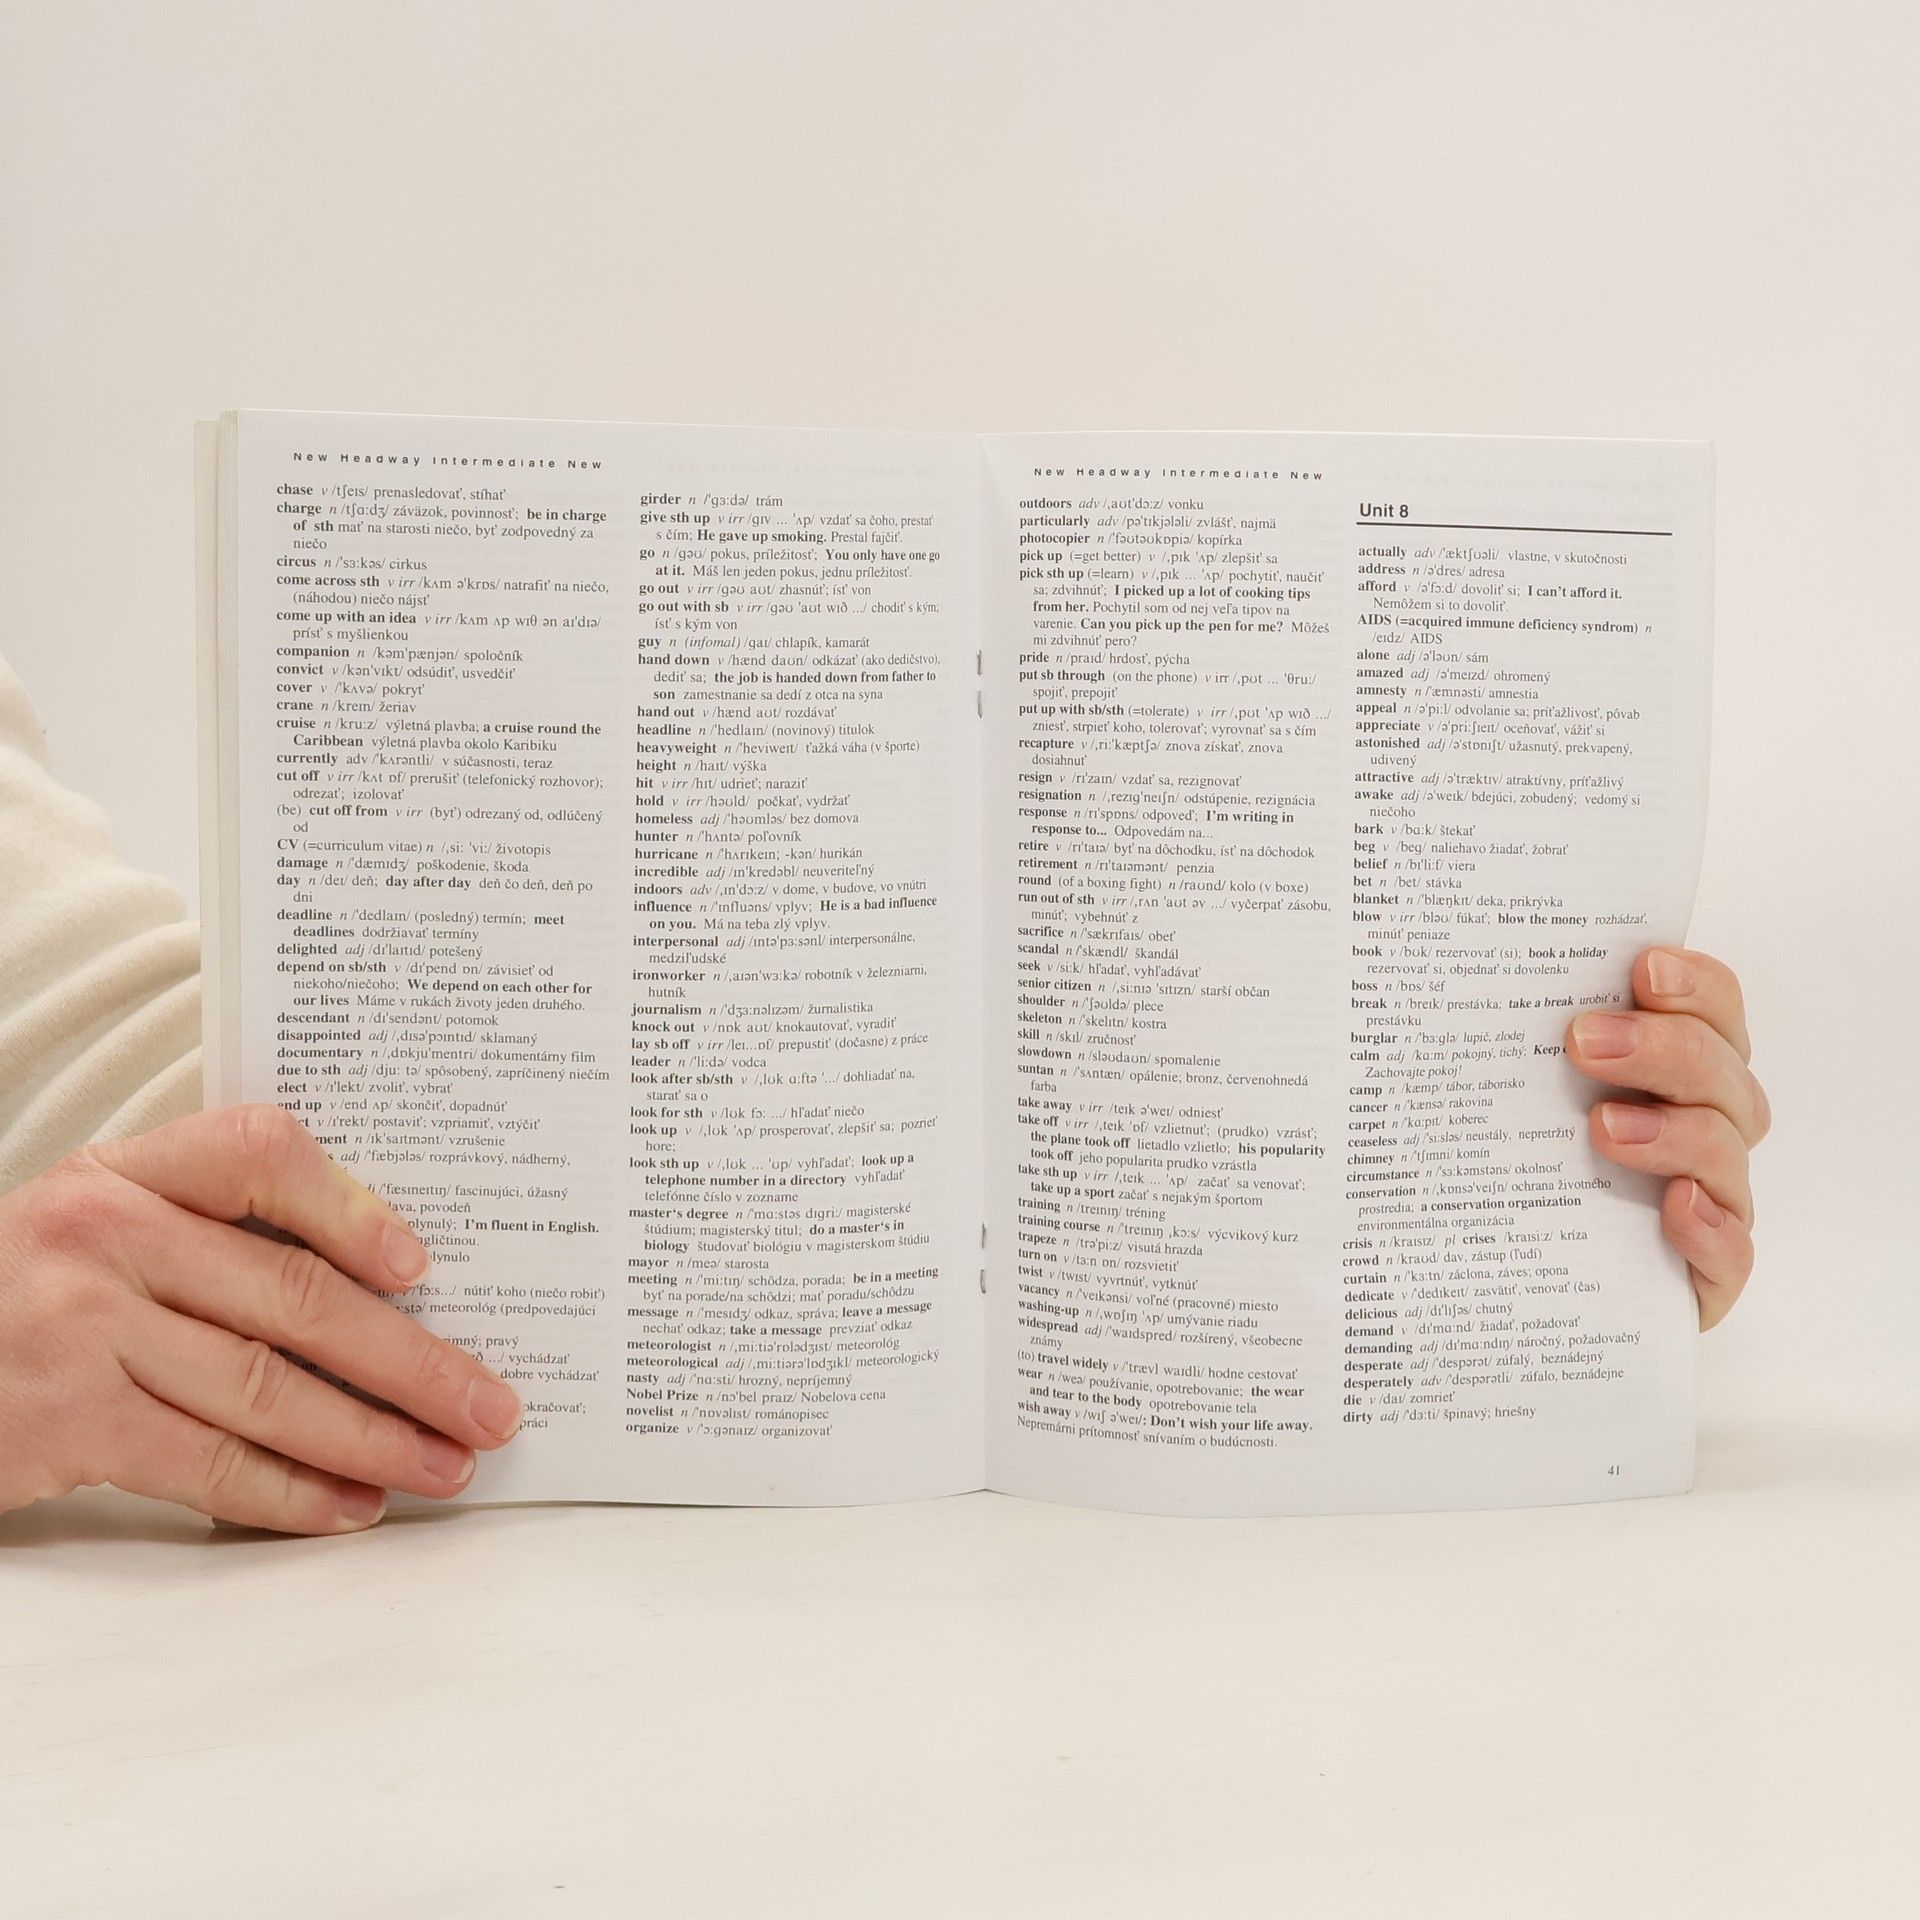 New Headway Intermediate New
chase v /tʃeɪs/ prenasledovať, stíhať
charge n /tʃɑ:dʒ/ záväzok, povinnosť; be in charge
of sth mať na starosti niečo, byť zodpovedný za
niečo
circus n /'sɜ:kəs/ cirkus
come across sth v irr /kʌm ə'krɒs/ natrafiť na niečo,
(náhodou) niečo nájsť
come up with an idea v irr /kʌm ʌp wɪθ ən aɪ'dɪə/
prísť s myšlienkou
companion n /kəm'pænjən/ spoločník
convict v /kən'vɪkt/ odsúdiť, usvedčiť
cover v /'kʌvə/ pokryť
crane n /kreɪn/ žeriav
cruise n /kru:z/ výletná plavba; a cruise round the
Caribbean výletná plavba okolo Karibiku
currently adv /'kʌrəntli/ v súčasnosti, teraz
cut off v irr /kʌt ɒf/ prerušiť (telefonický rozhovor);
odrezať; izolovať
(be) cut off from v irr (byť) odrezaný od, odlúčený
od
CV (=curriculum vitae) n /,si: 'vi:/ životopis
damage n /'dæmɪdʒ/ poškodenie, škoda
day n /deɪ/ deň; day after day deň čo deň, deň po
dni
deadline n /'dedlaɪn/ (posledný) termín; meet
deadlines dodržiavať termíny
delighted adj /dɪ'laɪtɪd/ potešený
depend on sb/sth v /dɪ'pend ɒn/ závisieť od
niekoho/niečoho; We depend on each other for
our lives Máme v rukách životy jeden druhého.
descendant n /dɪ'sendənt/ potomok
disappointed adj /,dɪsə'pɔɪntɪd/ sklamaný
documentary n /,dɒkju'mentri/ dokumentárny film
due to sth adj /dju: tə/ spôsobený, zapríčinený niečím
elect v /ɪ'lekt/ zvoliť, vybrať
end up v /end ʌp/ skončiť, dopadnúť
v /ɪ'rekt/ postaviť; vzpriamiť, vztýčiť
n /ɪk'saɪtmənt/ vzrušenie
adj /'fæbjələs/ rozprávkový, nádherný,
/'fæsɪneɪtɪŋ/ fascinujúci, úžasný
povodeň
plynulý; I'm fluent in English.
plynulo
/'fɔ:s.../ nútiť koho (niečo robiť)
meteorológ (predpovedajúci
pravý
.../ vychádzať
dobre vychádzať
girder n /'gɜ:də/ trám
give sth up v irr /gɪv ... 'ʌp/ vzdať sa čoho, prestať
s čím; He gave up smoking. Prestal fajčiť.
go n /gəʊ/ pokus, príležitosť; You only have one go
at it. Máš len jeden pokus, jednu príležitosť.
go out v irr /gəʊ aʊt/ zhasnúť; ísť von
go out with sb v irr /gəʊ 'aʊt wɪð .../ chodiť s kým;
ísť s kým von
guy n (infomal) /gaɪ/ chlapík, kamarát
hand down v /hænd daʊn/ odkázať (ako dedičstvo),
dediť sa; the job is handed down from father to
son zamestnanie sa dedí z otca na syna
hand out v /hænd aʊt/ rozdávať
headline n /'hedlaɪn/ (novinový) titulok
heavyweight n /'heviweɪt/ ťažká váha (v športe)
height n /haɪt/ výška
hit v irr /hɪt/ udrieť; naraziť
hold v irr /həʊld/ počkať, vydržať
homeless adj /'həʊmləs/ bez domova
hunter n /'hʌntə/ poľovník
hurricane n /'hʌrɪkeɪn; -kən/ hurikán
incredible adj /ɪn'kredəbl/ neuveriteľný
indoors adv /,ɪn'dɔ:z/ v dome, v budove, vo vnútri
influence n /'ɪnfluəns/ vplyv; He is a bad influence
on you. Má na teba zlý vplyv.
interpersonal adj /ɪntə'pɜ:sənl/ interpersonálne,
medziľudské
ironworker n /,aɪən'wɜ:kə/ robotník v železniarni,
hutník
journalism n /'dʒɜ:nəlɪzəm/ žurnalistika
knock out v /nɒk aʊt/ knokautovať, vyradiť
lay sb off v irr /leɪ...ɒf/ prepustiť (dočasne) z práce
leader n /'li:də/ vodca
look after sb/sth v /,lʊk ɑ:ftə '.../ dohliadať na,
starať sa o
look for sth v /lʊk fɔ: .../ hľadať niečo
look up v /,lʊk 'ʌp/ prosperovať, zlepšiť sa; pozrieť
hore;
look sth up v /,lʊk ... 'ʊp/ vyhľadať; look up a
telephone number in a directory vyhľadať
telefónne číslo v zozname
master's degree n /'mɑ:stəs dɪgri:/ magisterské
štúdium; magisterský titul; do a master's in
biology študovať biológiu v magisterskom štúdiu
mayor n /meə/ starosta
meeting n /'mi:tɪŋ/ schôdza, porada; be in a meeting
byť na porade/na schôdzi; mať poradu/schôdzu
message n /'mesɪdʒ/ odkaz, správa; leave a message
nechať odkaz; take a message prevziať odkaz
meteorologist n /,mi:tiə'rɒlədʒɪst/ meteorológ
meteorological adj /,mi:tiərə'lɒdʒɪkl/ meteorologický
nasty adj /'nɑ:sti/ hrozný, nepríjemný
Nobel Prize n /nə'bel praɪz/ Nobelova cena
novelist n /'nɒvəlɪst/ románopisec
organize v /'ɔ:gənaɪz/ organizovať
New Headway Intermediate New
outdoors adv /,aʊt'dɔ:z/ vonku
particularly adv /pə'tɪkjələli/ zvlášť, najmä
photocopier n /'fəʊtəʊkɒpiə/ kopírka
pick up (=get better) v /,pɪk 'ʌp/ zlepšiť sa
pick sth up (=learn) v /,pɪk ... 'ʌp/ pochytiť, naučiť
sa; zdvihnúť; I picked up a lot of cooking tips
from her. Pochytil som od nej veľa tipov na
varenie. Can you pick up the pen for me? Môžeš
mi zdvihnúť pero?
pride n /praɪd/ hrdosť, pýcha
put sb through (on the phone) v irr /,pʊt ... 'θru:/
spojiť, prepojiť
put up with sb/sth (=tolerate) v irr /,pʊt 'ʌp wɪð .../
zniesť, strpieť koho, tolerovať; vyrovnať sa s čím
recapture v /,ri:'kæptʃə/ znova získať, znova
dosiahnuť
resign v /rɪ'zaɪn/ vzdať sa, rezignovať
resignation n /,rezɪg'neɪʃn/ odstúpenie, rezignácia
response n /rɪ'spɒns/ odpoveď; I'm writing in
response to... Odpovedám na...
retire v /rɪ'taɪə/ byť na dôchodku, ísť na dôchodok
retirement n /rɪ'taɪəmənt/ penzia
round (of a boxing fight) n /raʊnd/ kolo (v boxe)
run out of sth v irr /,rʌn 'aʊt əv .../ vyčerpať zásobu,
minúť; vybehnúť z
sacrifice n /'sækrɪfaɪs/ obeť
scandal n /'skændl/ škandál
seek v /si:k/ hľadať, vyhľadávať
senior citizen n /,si:nɪə 'sɪtɪzn/ starší občan
shoulder n /'ʃəʊldə/ plece
skeleton n /'skelɪtn/ kostra
skill n /skɪl/ zručnosť
slowdown n /sləʊdaʊn/ spomalenie
suntan n /'sʌntæn/ opálenie; bronz, červenohnedá
farba
take away v irr /teɪk ə'weɪ/ odniesť
take off v irr /,teɪk 'ɒf/ vzlietnuť; (prudko) vzrásť;
the plane took off lietadlo vzlietlo; his popularity
took off jeho popularita prudko vzrástla
take sth up v irr /,teɪk ... 'ʌp/ začať sa venovať;
take up a sport začať s nejakým športom
training n /treɪnɪŋ/ tréning
training course n /'treɪnɪŋ ,kɔ:s/ výcvikový kurz
trapeze n /trə'pi:z/ visutá hrazda
turn on v /tɜ:n ɒn/ rozsvietiť
twist v /twɪst/ vyvrtnúť, vytknúť
vacancy n /'veɪkənsi/ voľné (pracovné) miesto
washing-up n /,wɒʃɪŋ 'ʌp/ umývanie riadu
widespread adj /'waɪdspred/ rozšírený, všeobecne
známy
(to) travel widely v /'trævl waɪdli/ hodne cestovať
wear n /weə/ používanie, opotrebovanie; the wear
and tear to the body opotrebovanie tela
wish away v /wɪʃ ə'weɪ/: Don't wish your life away.
Nepremárni prítomnosť snívaním o budúcnosti.
Unit 8
actually adv /'æktʃʊəli/ vlastne, v skutočnosti
address n /ə'dres/ adresa
afford v /ə'fɔ:d/ dovoliť si; I can't afford it.
Nemôžem si to dovoliť.
AIDS (=acquired immune deficiency syndrom) n
/eɪdz/ AIDS
alone adj /ə'ləʊn/ sám
amazed adj /ə'meɪzd/ ohromený
amnesty n /'æmnəsti/ amnestia
appeal n /ə'pi:l/ odvolanie sa; príťažlivosť, pôvab
appreciate v /ə'pri:ʃɪeɪt/ oceňovať, vážiť si
astonished adj /ə'stɒnɪʃt/ užasnutý, prekvapený,
udivený
attractive adj /ə'træktɪv/ atraktívny, príťažlivý
awake adj /ə'weɪk/ bdejúci, zobudený; vedomý si
niečoho
bark v /bɑ:k/ štekať
beg v /beg/ naliehavo žiadať, žobrať
belief n /bɪ'li:f/ viera
bet n /bet/ stávka
blanket n /'blæŋkɪt/ deka, prikrývka
blow v irr /bləʊ/ fúkať; blow the money rozhádzať,
minúť peniaze
book v /bʊk/ rezervovať (si); book a holiday
rezervovať si, objednať si dovolenku
boss n /bɒs/ šéf
break n /breɪk/ prestávka; take a break urobiť si
prestávku
burglar n /'bɜ:glə/ lupič, zlodej
calm adj /kɑ:m/ pokojný, tichý; Keep
Zachovajte pokoj!
camp n /kæmp/ tábor, táborisko
cancer n /'kænsə/ rakovina
carpet n /'kɑ:pɪt/ koberec
ceaseless adj /'si:sləs/ neustály, nepretržitý
chimney n /'tʃɪmni/ komín
circumstance n /'sɜ:kəmstəns/ okolnosť
conservation n /,kɒnsə'veɪʃn/ ochrana životného
prostredia; a conservation organization
environmentálna organizácia
crisis n /kraɪsɪz/ pl crises /kraɪsi:z/ kríza
crowd n /kraʊd/ dav, zástup (ľudí)
curtain n /'kɜ:tn/ záclona, záves; opona
dedicate v /'dedɪkeɪt/ zasvätiť, venovať (čas)
delicious adj /dɪ'lɪʃəs/ chutný
demand v /dɪ'mɑ:nd/ žiadať, požadovať
demanding adj /dɪ'mɑ:ndɪŋ/ náročný, požadovačný
desperate adj /'despərət/ zúfalý, beznádejný
desperately adj /'despərətli/ zúfalo, beznádejne
die v /daɪ/ zomrieť
dirty adj /'dɜ:ti/ špinavý; hriešny
41